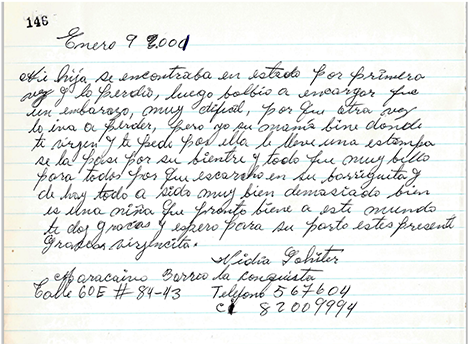 146
Enero 9 2001
Mi hija se encontraba en estado por primera
vez y lo perdio, luego bolbio a encargar fue
un embarazo, muy dificil, por que otra vez
lo iva a perder, pero yo su mamá bine donde
ti virgen y te pedi por ella le lleve una estampa
se la pase por su bientre y todo fue muy bello
para todos por que escarcho en su barriguita y
de hay todo a sido muy bien demasiado bien
es una niña que pronto biene a este mundo
te doy gracias y espero para su parto estes presente
Gracias virgencita.
Nidia
Maracaibo Barrio la Conquista
Calle 60E # 84-43 Telefono 567604
CI 82009994